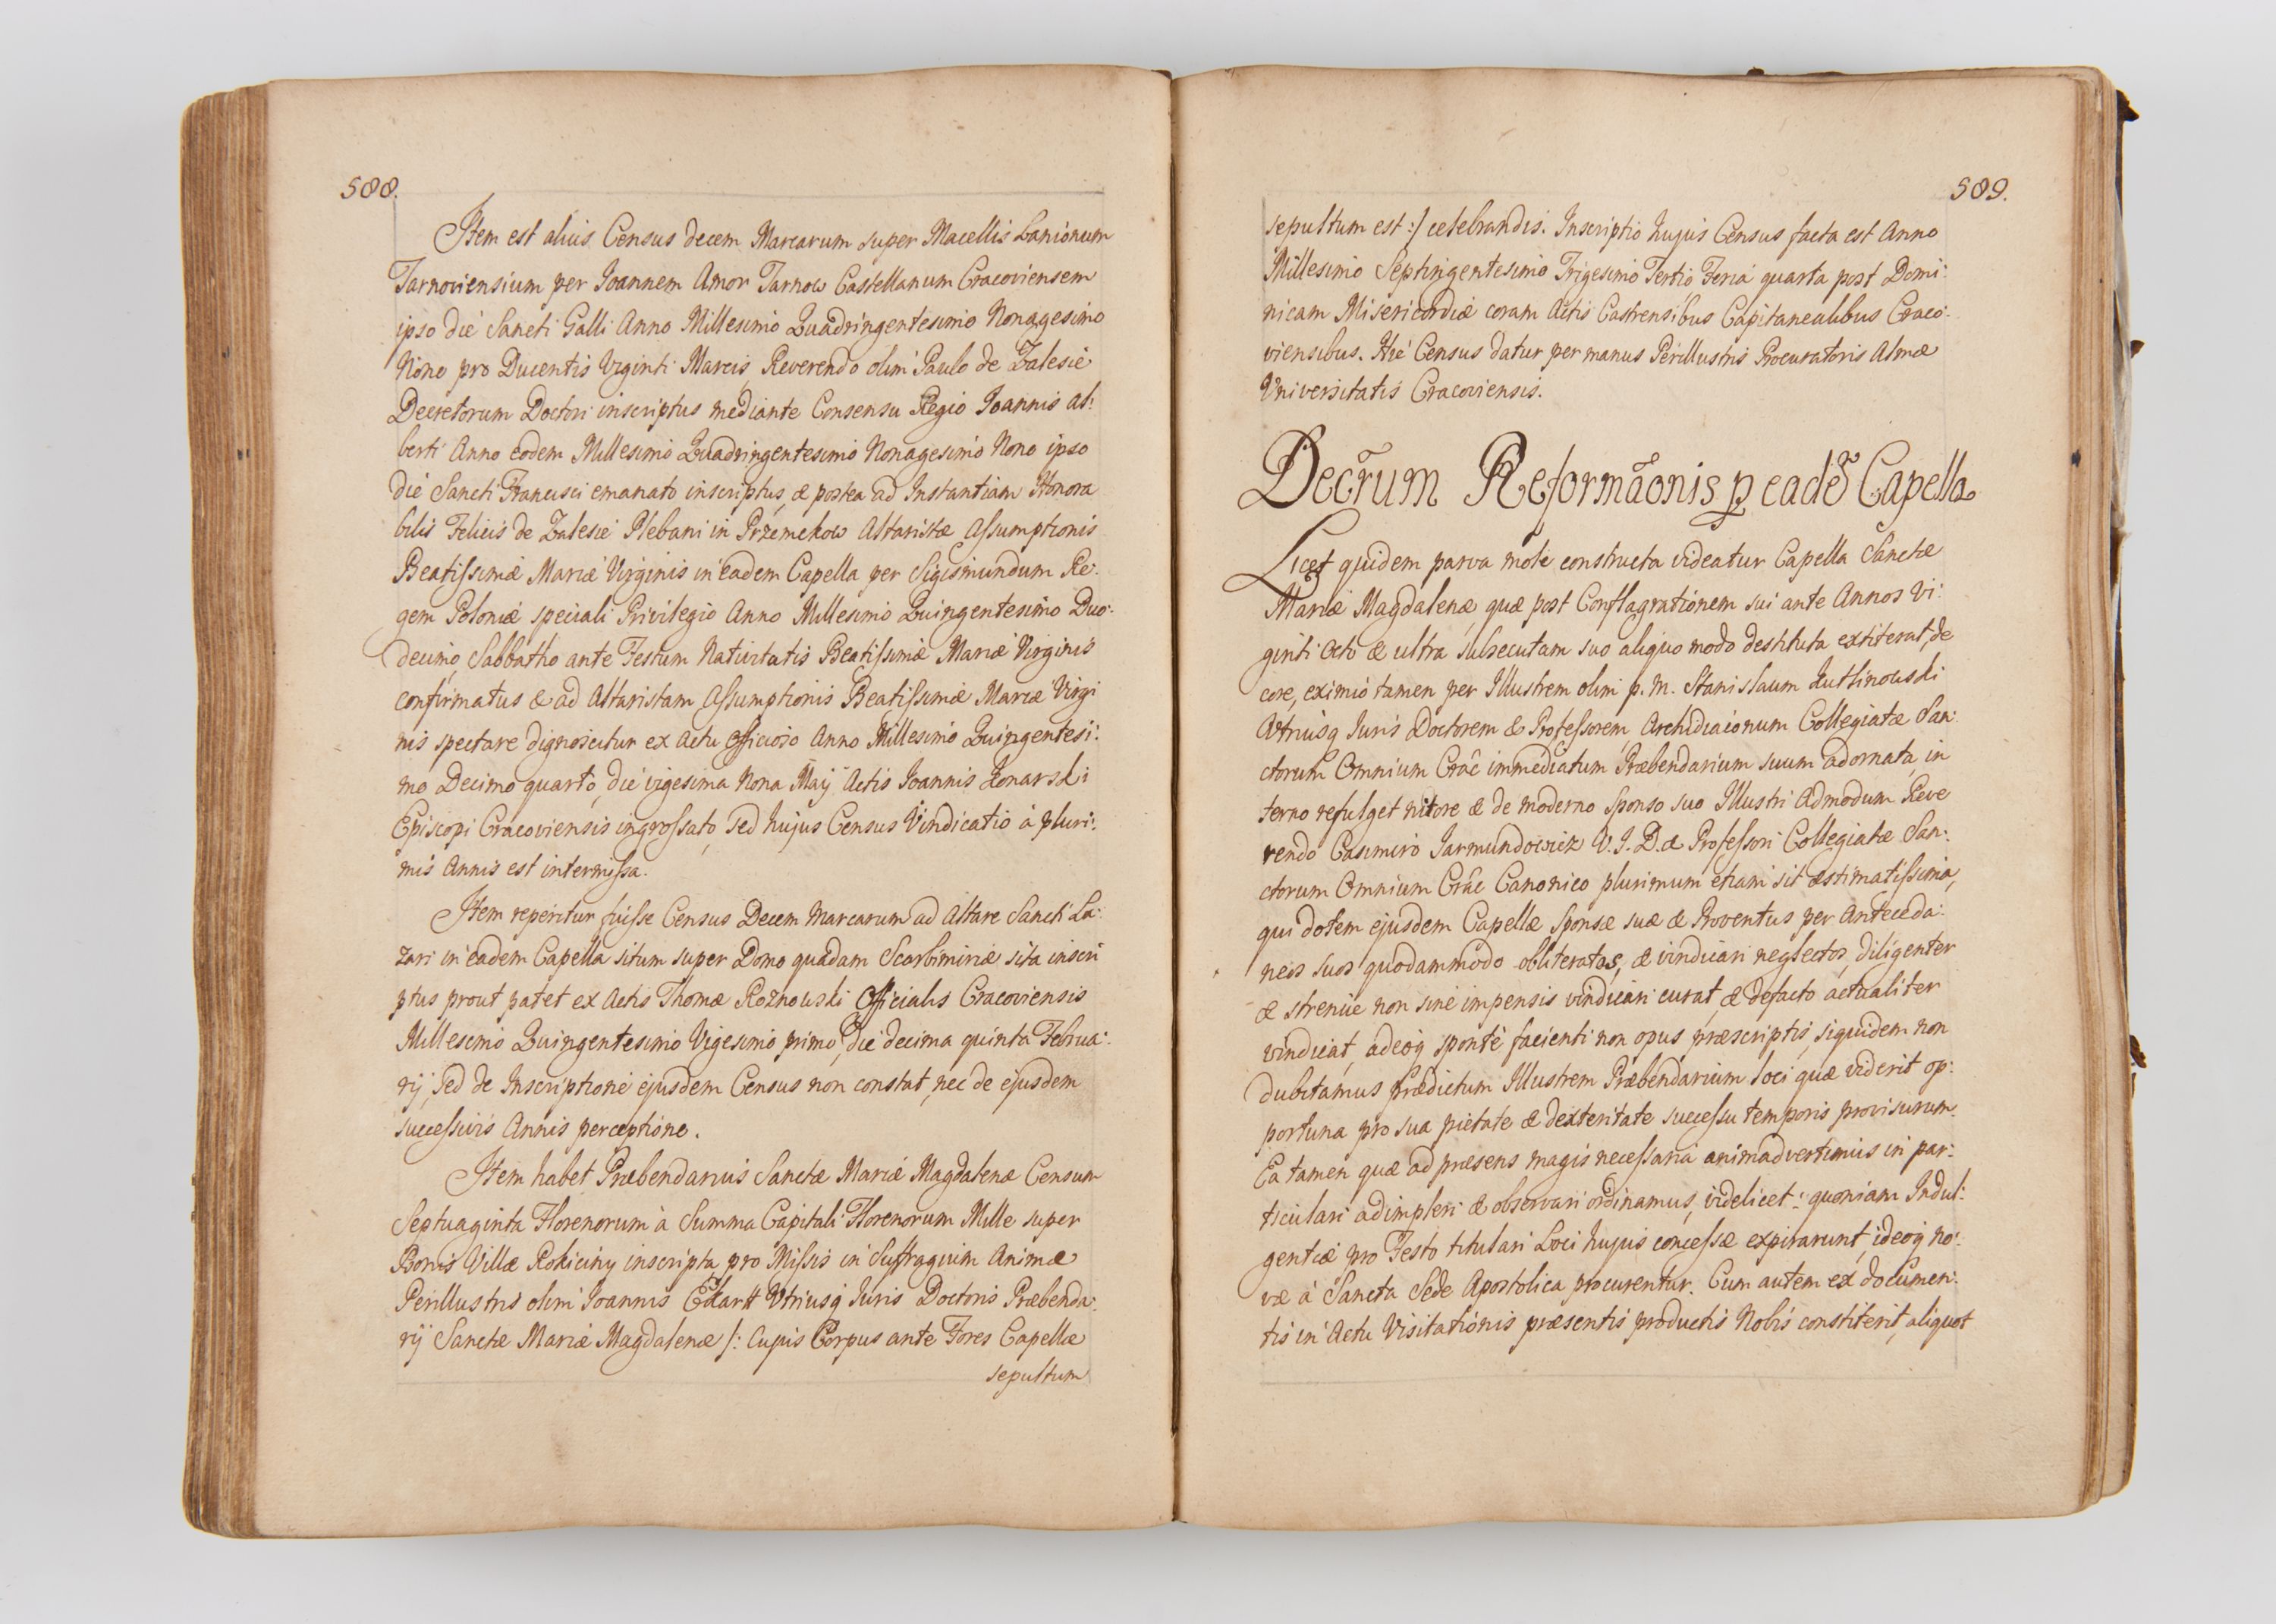 588.
Item est alius Census decem Marcarum super Macellis Lanionum
Tarnoviensium per Joannem Amor Tarnow Castellanum Cracoviensem
ipso die Sancti Galli Anno Millesimo Quadringentesimo Nonagesimo
Nono pro Ducentis Viginti Marcis, Reverendo olim Paulo de Zalesie
Decretorum Doctori inscriptus mediante Consensu Regio Joannis Al:
berti Anno eodem Millesimo Quadringentesimo Nonagesimo Nono ipso
die Sancti Francisci emanato inscriptus, & postea ad Instantiam Honora
bilis Felicis de Zalesie Plebani in Przemekow Altaristæ Assumptionis
Beatissimæ Mariæ Virginis in eadem Capella per Sigismundum Re:
gem Poloniæ speciali Privilegio Anno Millesimo Quingentesimo Duo:
decimo, Sabbatho ante Festum Nativitatis Beatissimæ Mariæ Virginis
confirmatus & ad Altaristam Assumptionis Beatissimæ Mariæ Virgi
nis spectare dignoscitur ex Actu Officioso Anno Millesimo Quingentesi:
mo Decimo quarto, die vigesima Nona Maij Actis Joannis Konarski
Episcopi Cracoviensis ingrossato, sed hujus Census Vindicatio à pluri:
mis Annis est intermissa.
Item reperitur fuisse Census Decem Marcarum ad Altare Sancti La:
zari in eadem Capella situm super Domo quadam Scarbimiriæ sita inscri
ptus prout patet ex Actis Thomæ Rożnowski Officialis Cracoviensis
Millesimo Quingentesimo Vigesimo primo, die decima quinta Februa:
rij, sed de Inscriptione ejusdem Census non constat, nec de ejusdem
successivis Annis perceptione.
Item habet Præbendarius Sanctæ Mariæ Magdalenæ Censum
Septuaginta Florenorum à Summa Capitali Florenorum Mille super
Bonis Villæ Rokiciny inscripta pro Missis in Suffragium Animæ
Perillustris olim Joannis Ekartt Utriusq Juris Doctoris Præbenda:
rij Sanctæ Mariæ Magdalenæ /: Cujus Corpus ante Fores Capellæ
sepultum
589.
sepultum est :/ celebrandis. Inscriptio hujus Census facta est Anno
Millesimo Septingentesimo Trigesimo Tertio Feria quarta post Domi:
nicam Misericordiæ coram Actis Castrensibus Capitanealibus Craco:
viensibus. Hic Census datur per manus Perillustris Procuratoris Almæ
Universitatis Cracoviensis.
Decr̃um Reformãonis p eadẽ Capella
Licet quidem parva mole constructa videatur Capella Sanctæ
Mariæ Magdalenæ, quæ post Conflagrationem sui ante Annos Vi:
ginti Octo & ultra subsecutam suo aliquo modo destituta extiterat, de
core, eximio tamen per Illustrem olim p. m. Stanislaum
Utriusq Juris Doctorem & Professorem, Archidiaconum Collegiatæ San:
ctorum Omnium Crãc immediatum Præbendarium suum adornata, in
terno refulget nitore & de moderno Sponso suo Illustri Admodum Reve
rendo Casimiro Jarmundowicz U. J. D. & Professori Collegiatæ San:
ctorum Omnium Crãc Canonico plurimum etiam sit æstimatissima,
qui dotem ejusdem Capellæ Sponsæ suæ & Proventus per Anteceda:
neos suos quodammodo obliteratos, & vindicari neglectos, diligenter
& strenue non sine impensis vindicari curat, & defacto actualiter
vindicat, adeoq sponte facienti non opus præscriptis, siquidem non
dubitamus prædictum Illustrem Præbendarium loci quæ viderit op:
portuna pro sua pietate & dexteritate successu temporis provisurum.
Ea tamen quæ ad præsens magis necessaria animadvertimus in par:
ticulari adimpleri & observari ordinamus, videlicet: quoniam Indul:
gentiæ pro Festo titulari Loci hujus concessæ expirarunt, ideoq no:
væ à Sancta Sede Apostolica procurentur. Cum autem ex documen:
tis in Actu Visitationis præsentis productis Nobis constiterit, aliquot